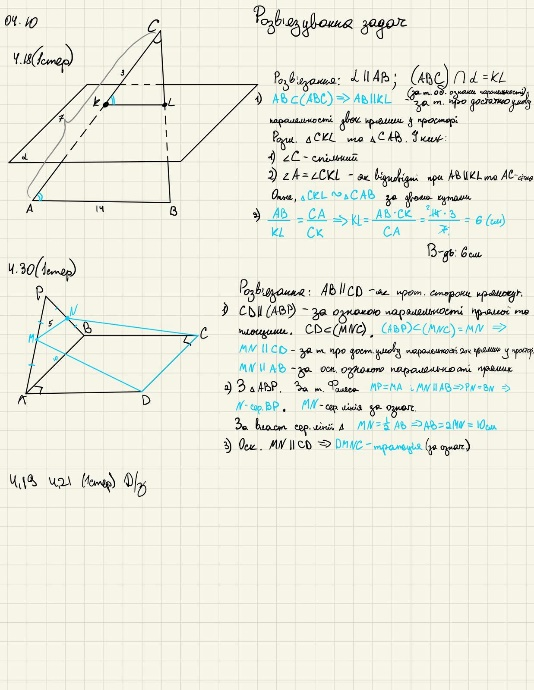 04.10
Розв'язування задач
4.18 (1стер)
Розв'язання: α || AB; (ABC) ∩ α = KL
1) AB ⊂ (ABC) ⇒ AB || KL
за т. про достатню умову
паралельності двох прямих у просторі
Розгл. △CKL та △CAB. У них:
1) ∠C - спільний
2) ∠A = ∠CKL - як відповідні при AB || KL та AC - січна
Отже, △CKL ∾ △CAB за двома кутами
2) AB/KL = CA/CK ⇒ KL = AB·CK/CA = 14·3/7 = 6 (см)
В-дь: 6см
C
3
K
L
7
α
A
14
B
4.30 (1стер)
Розв'язання: AB || CD - як прот. сторони прямокут.
1) CD || (ABP) - за ознакою паралельності прямої та
площини. CD ⊂ (MNC). (ABP) ∩ (MNC) = MN ⇒
MN || CD - за т. про дост. умову паралельності двох прямих у просторі
MN || AB - за осн. ознакою паралельності прямих
2) З △ABP. За т. Фалеса MP = MA і MN || AB ⇒ PN = BN ⇒
N - сер. BP. MN - сер. лінія за означ.
За власт сер. лінії △ MN = ½ AB ⇒ AB = 2MN = 10см
3) Оск. MN || CD ⇒ DMNC - трапеція (за означ)
P
5
N
M
B
C
A
D
4.19 4.21 (1стер) Д/з